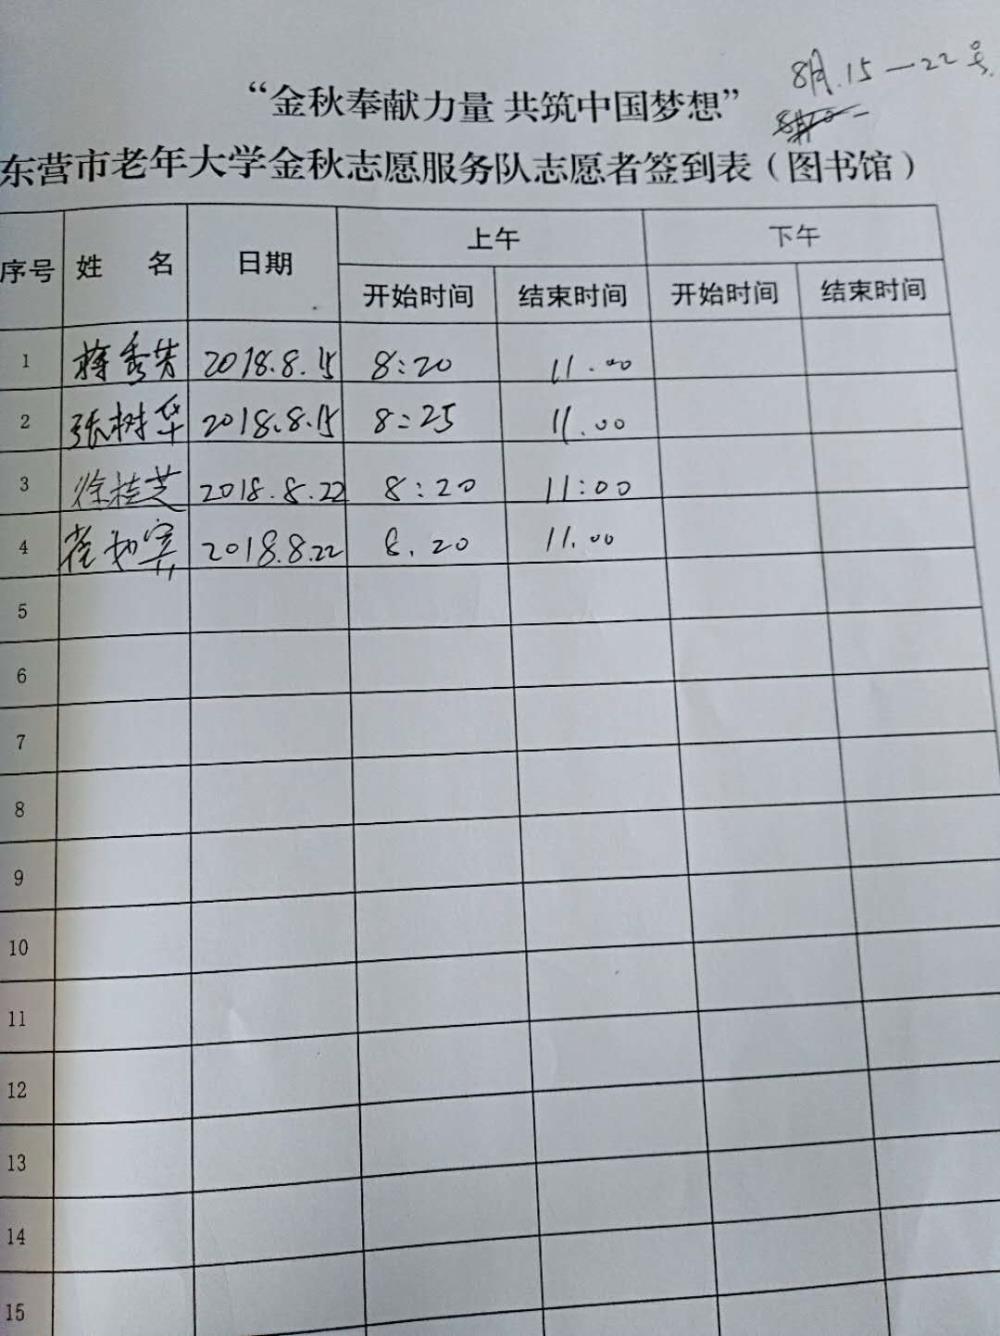 8月.15—22号
“金秋奉献力量 共筑中国梦想”
东营市老年大学金秋志愿服务队志愿者签到表（图书馆）
序号 姓 名 日期 上午 下午
开始时间 结束时间 开始时间 结束时间
1 蒋秀芳 2018.8.15 8:20 11.00
2 张树华 2018.8.15 8:25 11.00
3 徐桂芝 2018.8.22 8:20 11:00
4 2018.8.22 8.20 11.00
5
6
7
8
9
10
11
12
13
14
15